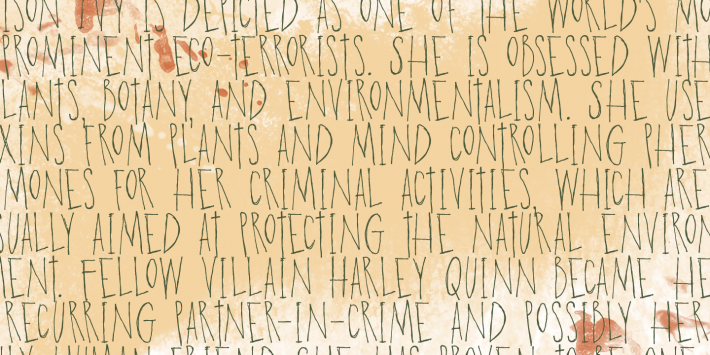 ISON IVY IS DEPICTED AS ONE OF THE WORLD'S MO
PROMINENT ECO-TERRORISTS. SHE IS OBSESSED WITH
LANTS, BOTANY, AND ENVIRONMENTALISM. SHE USE
XINS FROM PLANTS AND MIND CONTROLLING PHER
MONES FOR HER CRIMINAL ACTIVITIES, WHICH ARE
SUALLY AIMED AT PROTECTING THE NATURAL ENVIRON
ENT. FELLOW VILLAIN HARLEY QUINN BECAME HE
RECURRING PARTNER-IN-CRIME AND POSSIBLY HER
LY HUMAN FRIEND. SHE HAS PROVEN TO BE ONE